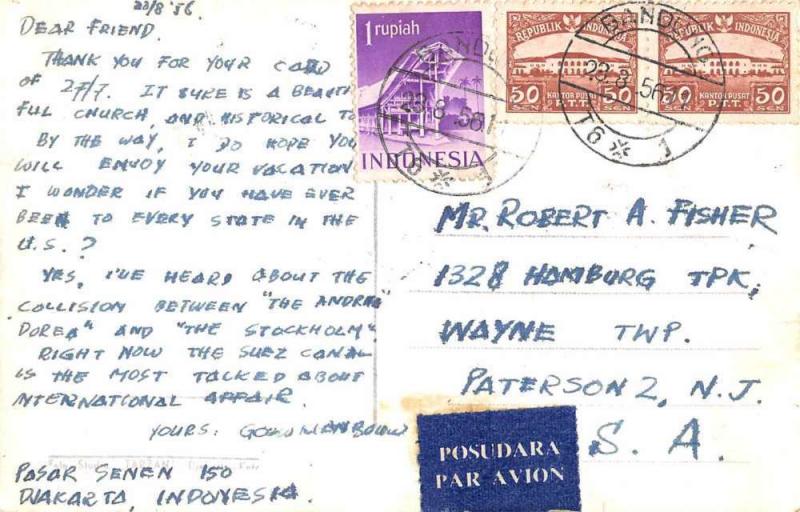 22/8 '56
DEAR FRIEND.
THANK YOU FOR YOUR CARD
OF 27/7. IT SURE IS A BEAUTI
FUL CHURCH, AND HISTORICAL TO
BY THE WAY, I DO HOPE YOU
WILL ENJOY YOUR VACATION
I WONDER IF YOU HAVE EVER
BEEN TO EVERY STATE IN THE
U.S.?
YES, I'VE HEARD ABOUT THE
COLLISION BETWEEN "THE ANDREA
DOREA" AND "THE STOCKHOLM"
RIGHT NOW THE SUEZ CANAL
IS THE MOST TALKED ABOUT
INTERNATIONAL AFFAIR.
YOURS:
PASAR SENEN 150
DJAKARTA, INDONESIA.
1 rupiah
INDONESIA
REPUBLIK INDONESIA
50 KANTOR PUSAT P.T.T. 50
SEN SEN
REPUBLIK INDONESIA
50 KANTOR PUSAT P.T.T. 50
SEN SEN
BANDUNG
23.8.56
BANDUNG
23.8.56
MR. ROBERT A. FISHER
1328 HAMBURG TPK,
WAYNE TWP.
PATERSON 2, N.J.
S. A.
POSUDARA
PAR AVION